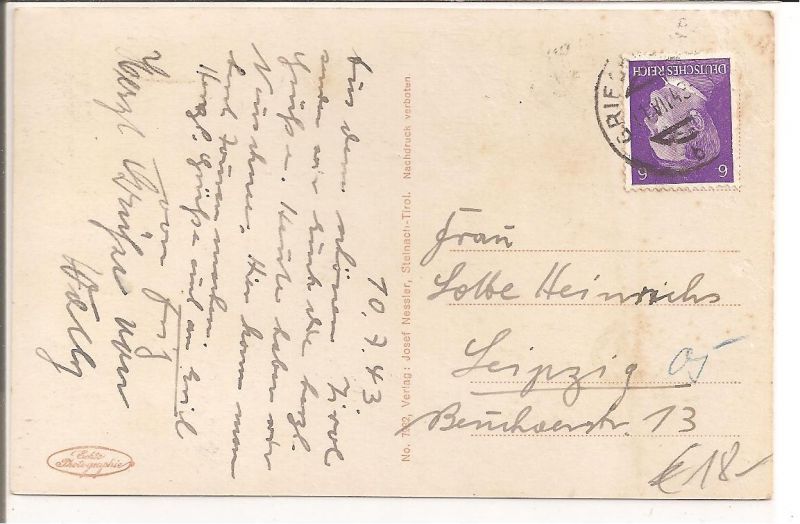 10.7.43
Aus dem schönen Tirol
senden wir Euch die herzl.
Grüße. Heute haben wir
Hier kann man
Touren machen.
Herzl. Grüße auch an
von
Herzl. Grüße von
Wally
No. 7222, Verlag: Josef Nessler, Steinach-Tirol. Nachdruck verboten
Echte
Photographie
GRIES
DEUTSCHES REICH
6 6
Frau
Lotte Heinrichs
Leipzig O5
13
€ 18-